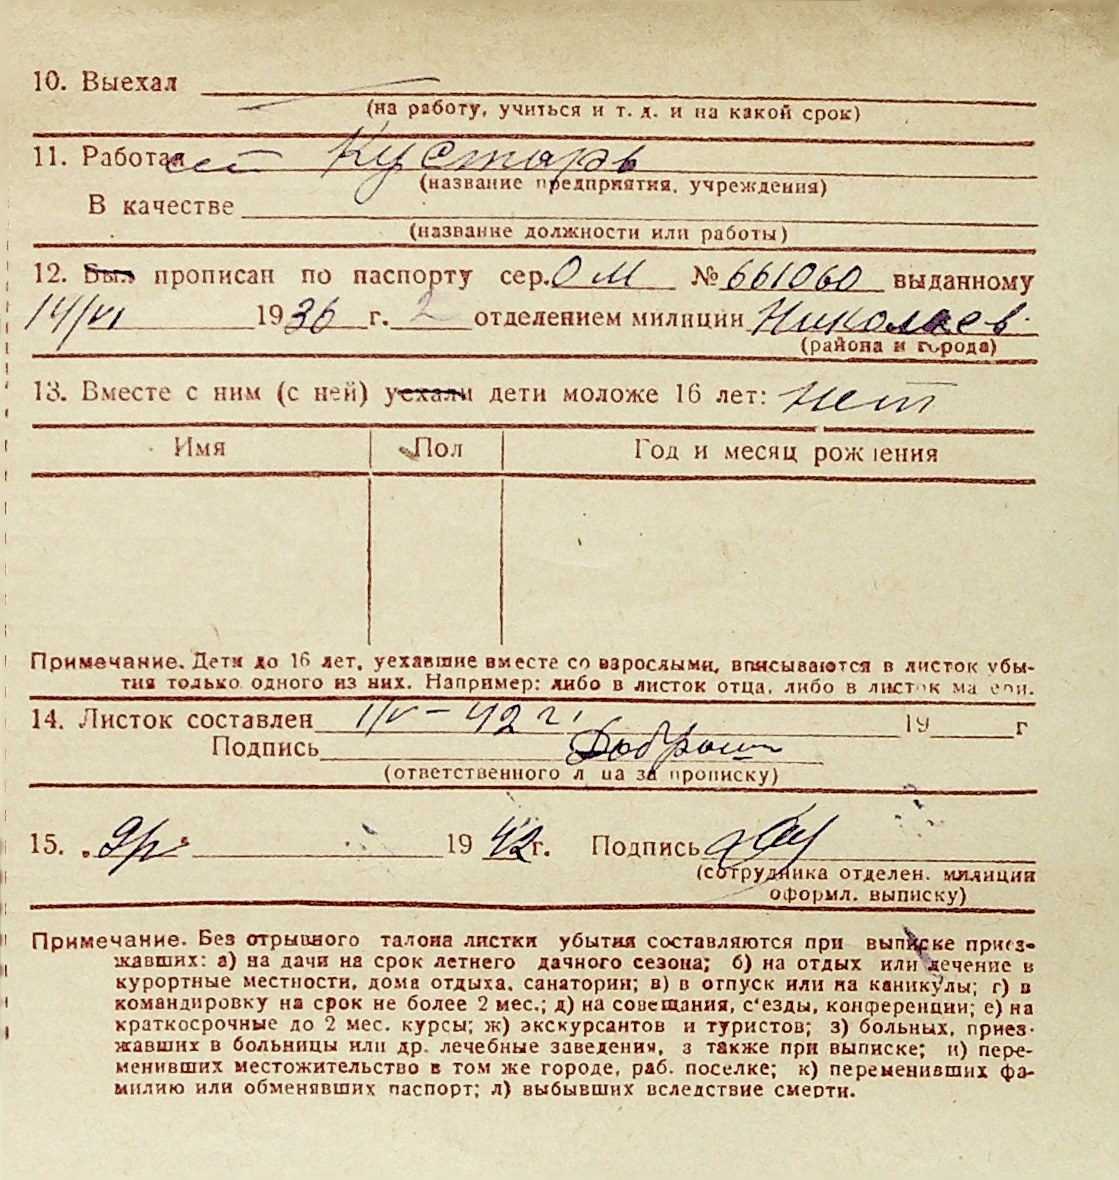 10. Выехал
(на работу, учиться и т. д. и на какой срок)
11. Работает Кустарь
(название предприятия, учреждения)
В качестве
(название должности или работы)
12. Был прописан по паспорту сер. ОМ № 661060 выданному
14/VI 1936 г. 2 отделением милиции Николаев.
(района и города)
13. Вместе с ним (с ней) уехали дети моложе 16 лет: нет
Имя Пол Год и месяц рождения
Примечание. Дети до 16 лет, уехавшие вместе со взрослыми, вписываются в листок убы-
тия только одного из них. Например: либо в листок отца, либо в листок матери.
14. Листок составлен 42 г. 19 г
Подпись
(ответственного лица за прописку)
15. 1942 г. Подпись
(сотрудника отделен. милиции
оформл. выписку)
Примечание. Без отрывного талона листки убытия составляются при выписке приез-
жавших: а) на дачи на срок летнего дачного сезона; б) на отдых или лечение в
курортные местности, дома отдыха, санатории; в) в отпуск или на каникулы; г) в
командировку на срок не более 2 мес.; д) на совещания, с'езды, конференции; е) на
краткосрочные до 2 мес. курсы; ж) экскурсантов и туристов; з) больных, приез-
жавших в больницы или др. лечебные заведения, а также при выписке; и) пере-
менивших местожительство в том же городе, раб. поселке; к) переменивших фа-
милию или обменявших паспорт; л) выбывших вследствие смерти.